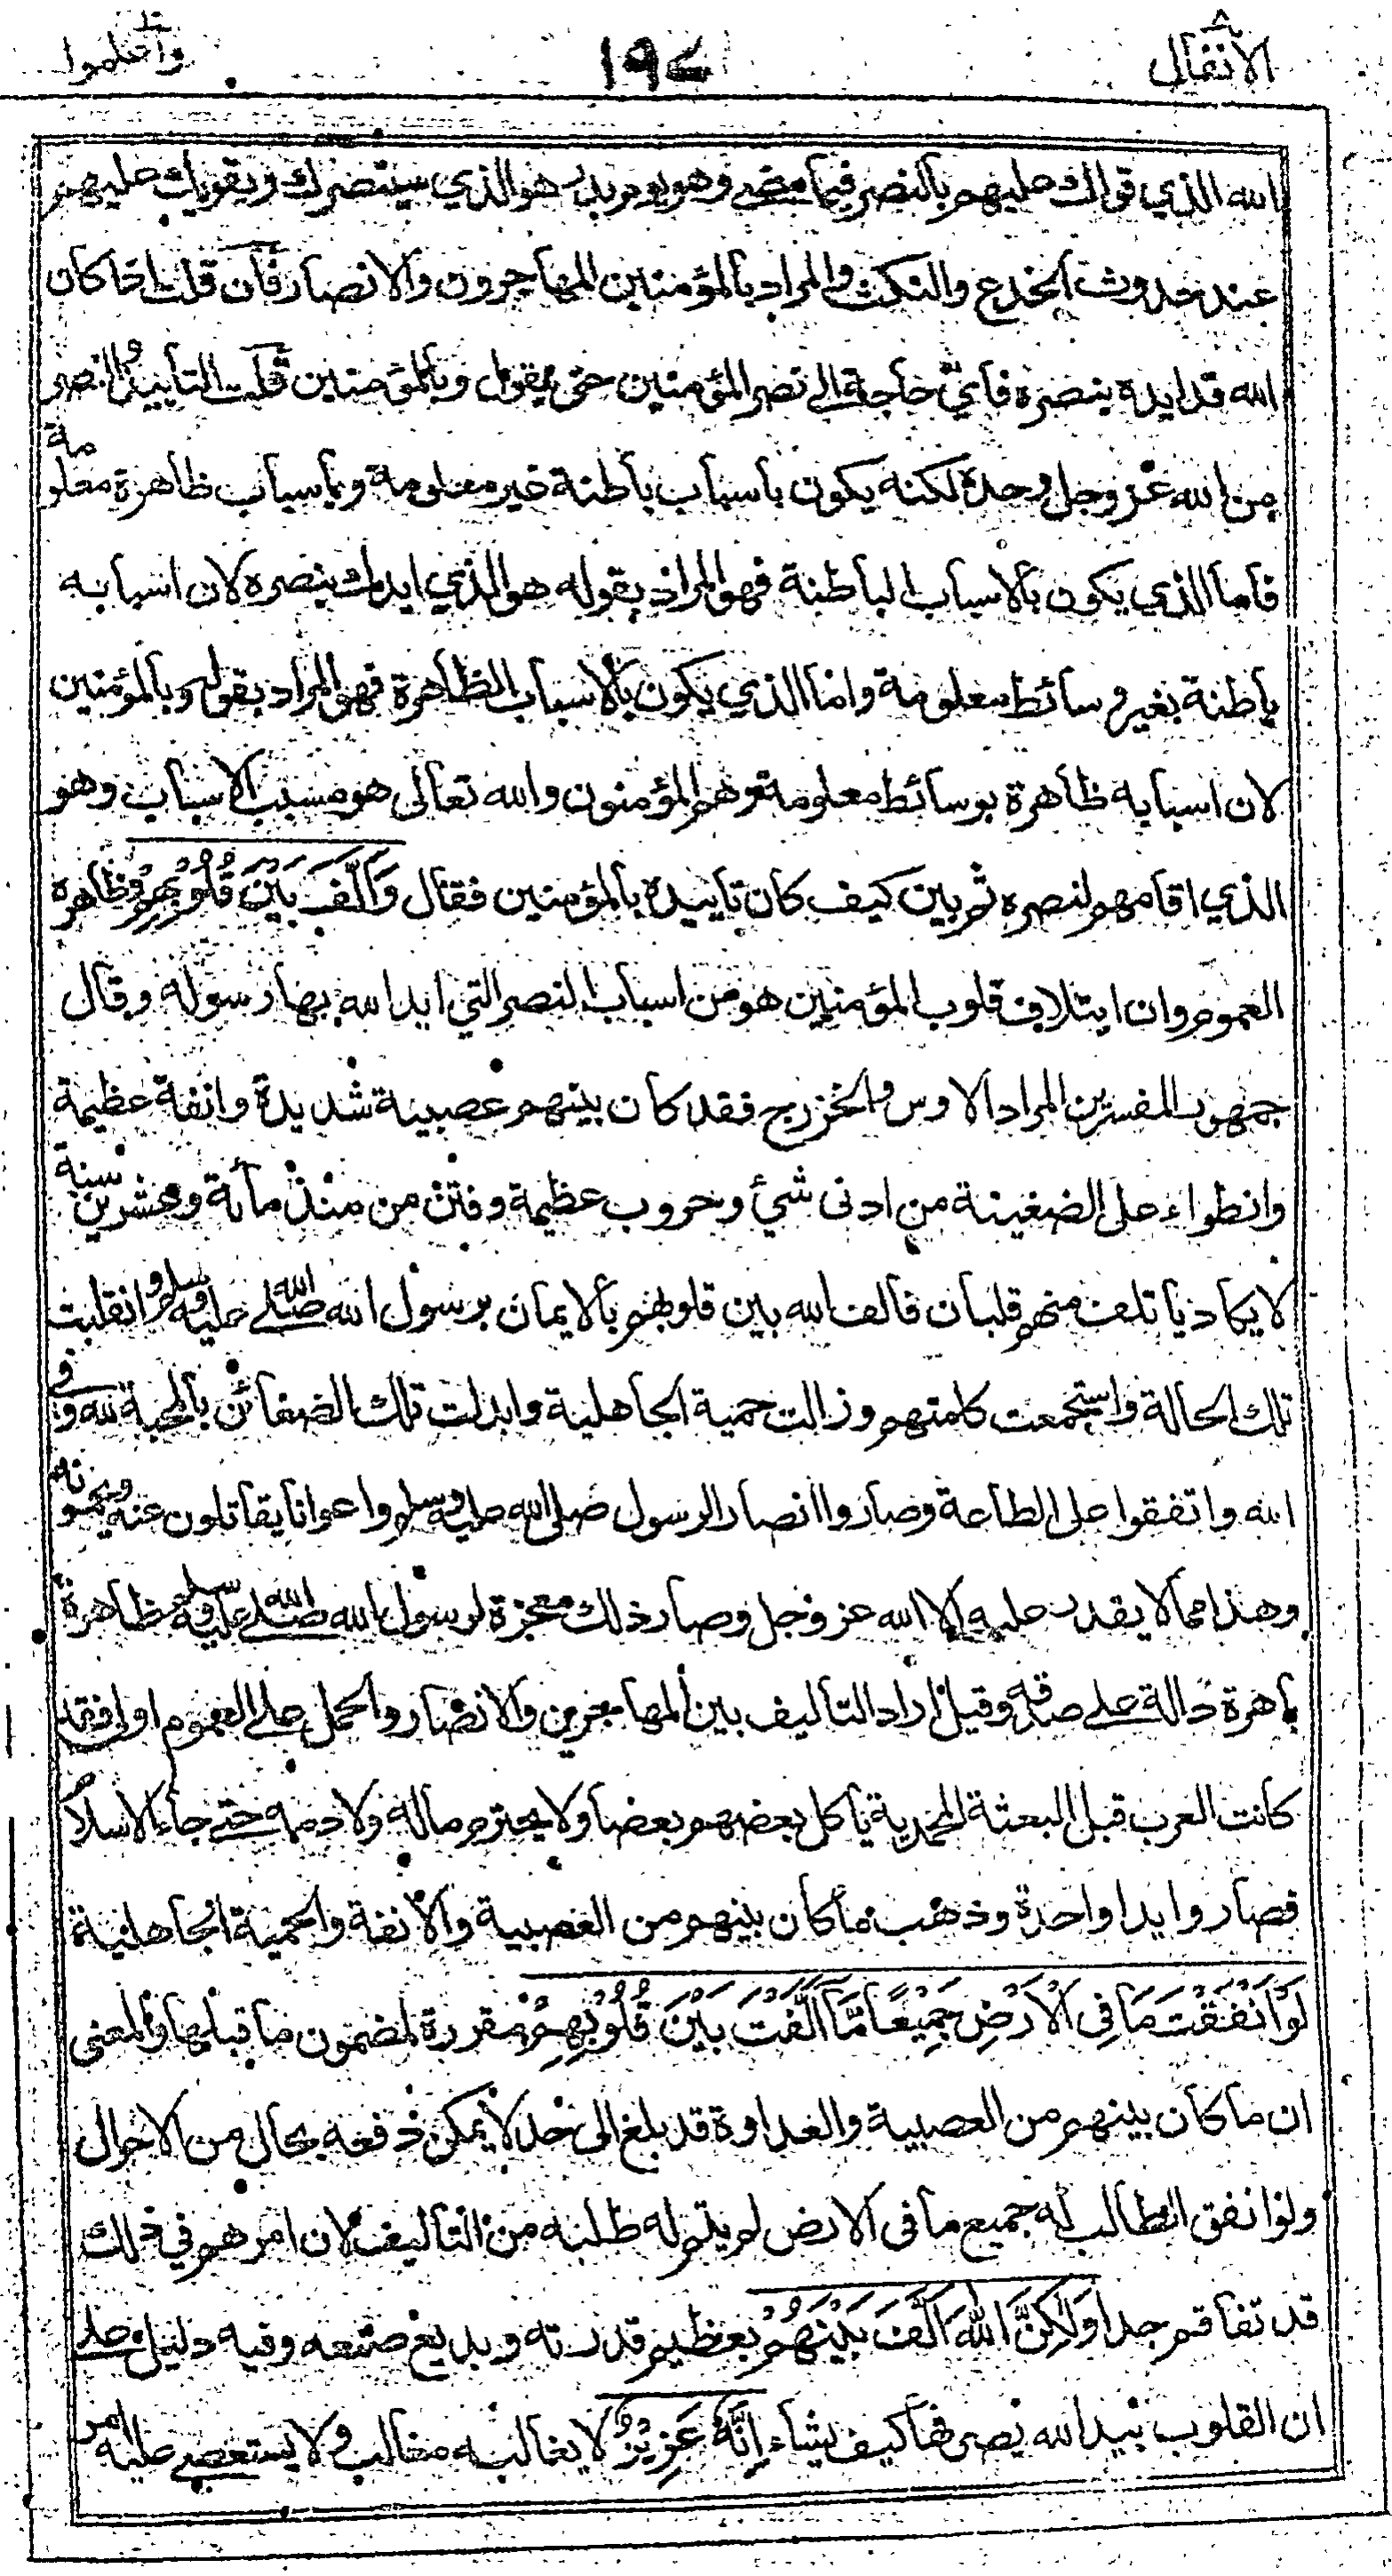 الانفال ٨
١٩٧
واعلموا
الله الذي قواك عليهم بالنصر فيما مضى وهو يوم بدر هو الذي سينصرك ويقويك عليهم
عند حدوث الخدع والنكث والمراد بالمؤمنين المهاجرون والانصار فان قلت اذا كان
الله قد ايده بنصره فاي حاجة الى نصر المؤمنين حتى يقول وبالمؤمنين قلت التأييد والنصر
من الله عز وجل وحده لكنه يكون باسباب باطنة غير معلومة وباسباب ظاهرة معلومة
فاما الذي يكون بالاسباب الباطنة فهو المراد بقوله هو الذي ايدك بنصره لان اسبابه
باطنة بغير وسائط معلومة واما الذي يكون بالاسباب الظاهرة فهو المراد بقوله وبالمؤمنين
لان اسبابه ظاهرة بوسائط معلومة وهم المؤمنون والله تعالى هو مسبب الاسباب وهو
الذي اقامهم لنصره ثم بين كيف كان تأييده بالمؤمنين فقال وَاَلَّفَ بَيْنَ قُلُوْبِهِمْ وظاهره
العموم وان ايتلاف قلوب المؤمنين هو من اسباب النصر التي ايد الله بها رسوله وقال
جمهور المفسرين المراد الاوس والخزرج فقد كان بينهم عصبية شديدة وانفة عظيمة
وانطواء على الضغينة من ادنى شئ وحروب عظيمة وفتن من منذ مائة وعشرين سنة
لا يكاد يأتلف منهم قلبان فالف الله بين قلوبهم بالايمان برسول الله صلى الله عليه وسلم وانقلبت
تلك الحالة واستجمعت كلمتهم وزالت حمية الجاهلية وابدلت تلك الضغائن بالمحبة لله وفي
الله واتفقوا على الطاعة وصاروا انصار الرسول صلى الله عليه وسلم واعوانا يقاتلون عنه ويحمونه
وهذا مما لا يقدر عليه الا الله عز وجل وصار ذلك معجزة لرسول الله صلى الله عليه وسلم ظاهرة
باهرة دالة على صدقه وقيل اراد التأليف بين المهاجرين والانصار والحمل على العموم اولى فقد
كانت العرب قبل البعثة المحمدية يأكل بعضهم بعضا ولا يحترم ماله ولا دمه حتى جاء الاسلام
فصاروا يدا واحدة وذهب ما كان بينهم من العصبية والانفة والحمية الجاهلية
لَوْ اَنْفَقْتَ مَا فِى الْاَرْضِ جَمِيْعًا مَّآ اَلَّفْتَ بَيْنَ قُلُوْبِهِمْ مقررة لمضمون ما قبلها والمعنى
ان ما كان بينهم من العصبية والعداوة قد بلغ الى حد لا يمكن دفعه بحال من الاحوال
ولو انفق الطالب له جميع ما في الارض لم يتم له طلبه من التأليف لان امرهم في ذلك
قد تفاقم جدا وَلٰكِنَّ اللّٰهَ اَلَّفَ بَيْنَهُمْ بعظيم قدرته وبديع صنعه وفيه دليل على
ان القلوب بيد الله يصرفها كيف يشاء اِنَّهٗ عَزِيْزٌ لا يغالبه مغالب ولا يستعصى عليه امر